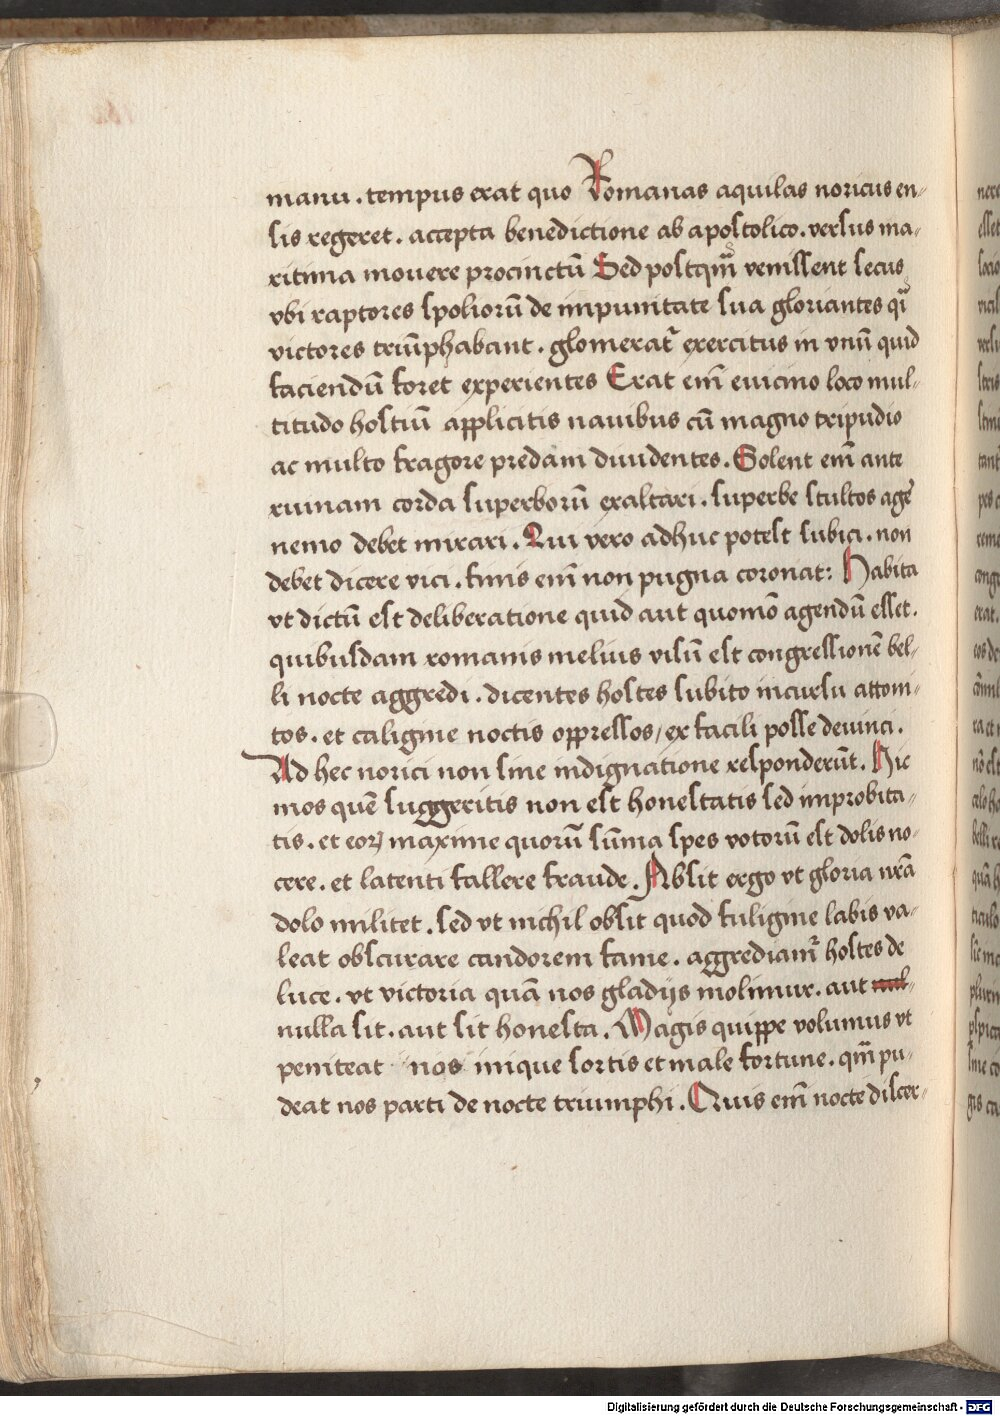 manu . tempus erat quo Romanas aquilas noricus en-
sis regeret . accepta benedictione ab apostolico . versus ma-
ritima mouere procinctū Sed postqm̄ venissent secus
vbi raptores spoliorū de impunitate sua gloriantes qͥ
victores triūphabant . glomerat᷑ exercitus in vnū quid
faciendū foret experientes Erat em̄ euicino loco mul-
titudo hostiū applicitis nauibus cū magno tripudio
ac multo fragore predam diuidentes . Solent em̄ ante
ruinam corda superborū exaltari . superbe stultos agē
nemo debet mirari . Qui vero adhuc potest subici . non
debet dicere vici . finis em̄ non pugna coronat : Habita
vt dictū est deliberatione quid aut quomō agendū esset .
quibusdam romanis melius visū est congressionē bel-
li nocte aggredi . dicentes hostes subito incursu attoni-
tos . et caligine noctis oppressos / ex facili posse deuinci .
Ad hec norici non sine indignatione responderūt . Hic
mos quē suggeritis non est honestatis sed improbita-
tis . et eoꝝ maxime quorū sūma spes votorū est dolis no-
cere . et latenti fallere fraude . Absit ergo vt gloria nr̄a
dolo militet . sed vt nichil obsit quod fuligine labis va-
leat obscurare candorem fame . aggrediam᷑ hostes de
luce . vt victoria quā nos gladijs molimur . aut nul-
nulla sit . aut sit honesta . Magis quippe volumus vt
peniteat nos inique sortis et male fortune . qm̄ pu-
deat nos parti de nocte triumphi . Quis em̄ nocte discer-
Digitalisierung gefördert durch die Deutsche Forschungsgemeinschaft - DFG